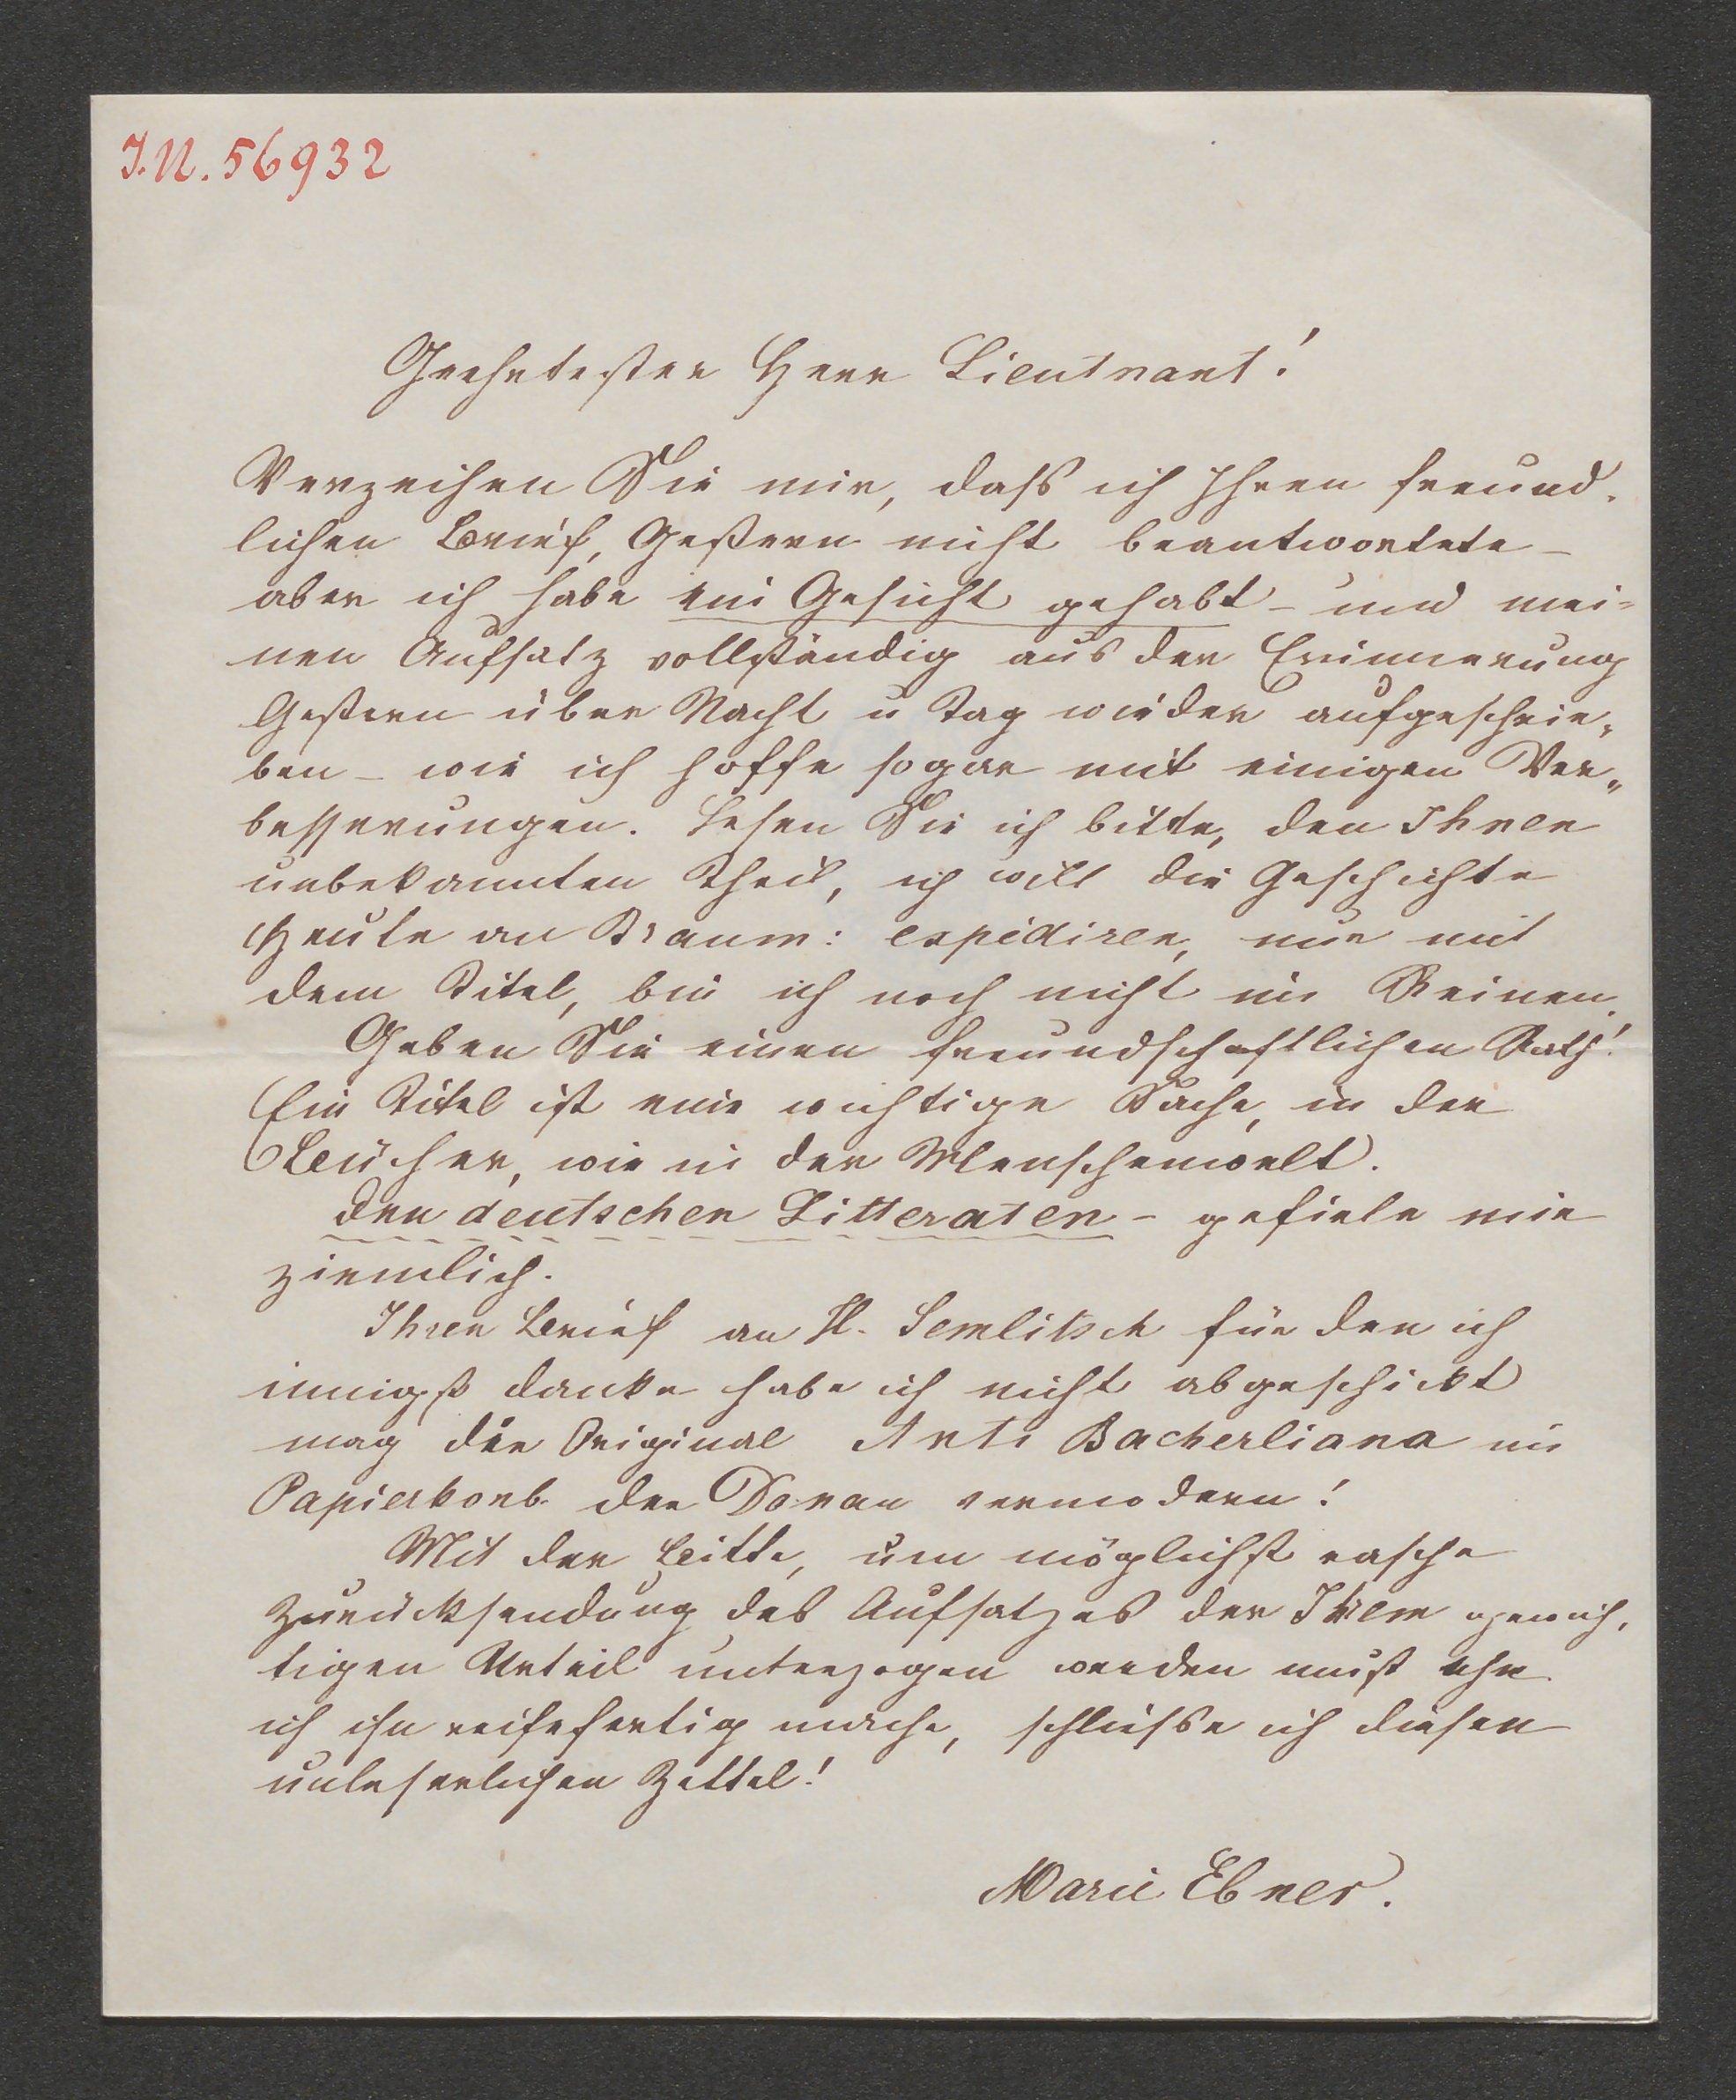 I.N. 56932
Geehrtester Herr Lieutnant!
Verzeihen Sie mir, daß ich Ihren freund-
lichen Brief, Gestern nicht beantwortete –
aber ich habe ein Gesicht gehabt – und mei-
nen Aufsatz vollständig aus der Erinnerung
Gestern über Nacht u Tag wieder aufgeschrie-
ben – wie ich hoffe sogar mit einigen Ver-
besserungen. Lesen Sie ich bitte, den Ihnen
unbekannten Theil, ich will die Geschichte
Heute an Braum: expidiren, nur mit
dem Titel, bin ich noch nicht im Reinen.
Geben Sie einen freundschaftlichen Rath!
Ein Titel ist eine wichtige Sache, in der
Bücher, wie in der Menschenwelt.
Den deutschen Litteraten – gefiele mir
ziemlich.
Ihren Brief an H. Semlitsch für den ich
innigst danke habe ich nicht abgeschickt
mag die Original Anti Bacherliana im
Papierkorb der Donau vermodern!
Mit der Bitte, um möglichst rasche
Zurücksendung des Aufsatzes der Ihrem gewich-
tigen Urteil unterzogen werden muß ehe
ich ihn reisefertig mache, schließe ich diesen
unleserlichen Zettel!
Marie Ebner.